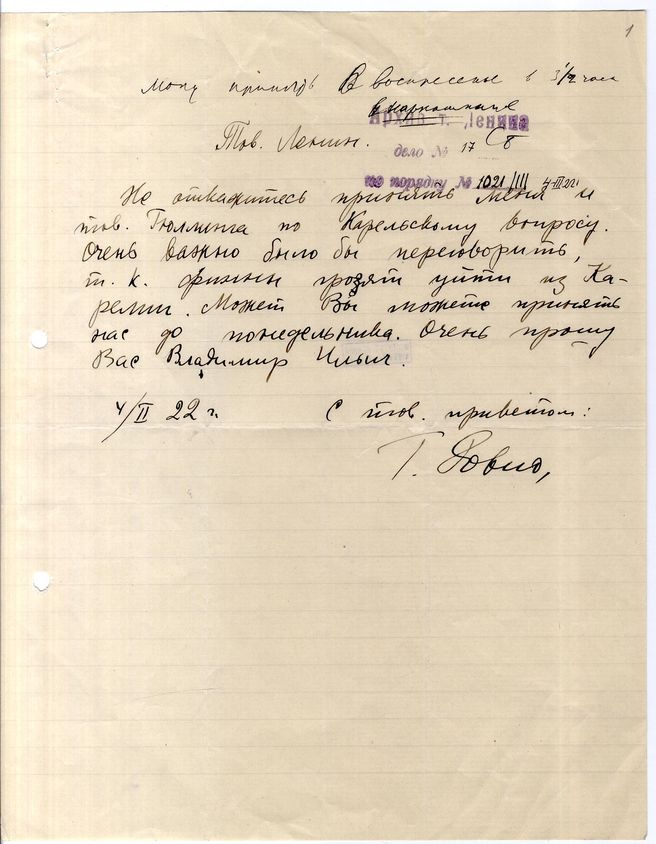 1
Могу принять В воскресенье в 3 1/2 часа
Архив т. Ленина
Тов. Ленин.
дело № 17
по порядку № 1021/III 4-III 22 г
Не откажитесь принять меня и
тов. Гюллинга по Карельскому вопросу.
Очень важно было бы переговорить,
т. к. финны грозят уйти из Ка-
релии. Может Вы можете принять
нас до понедельника. Очень прошу
Вас Владимир Ильич.
4/II 22 г. С тов. приветом:
Г. Ровио,